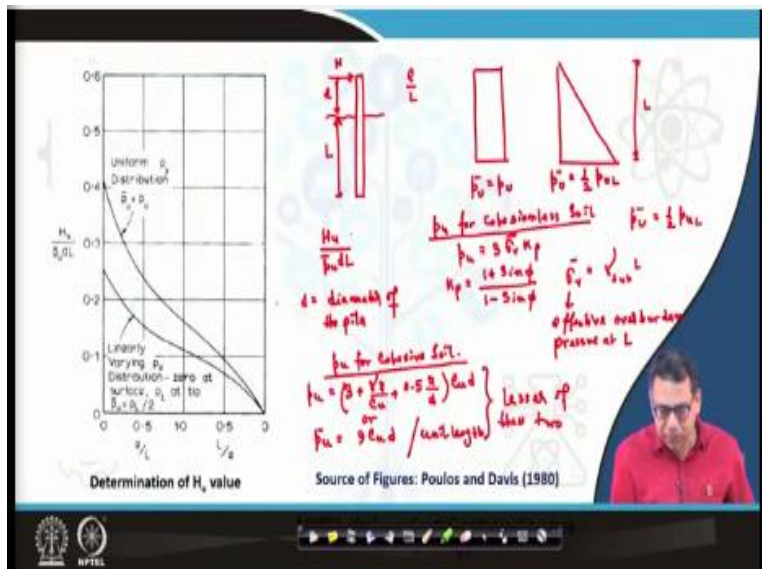 0·6
0·5
0·4
0·3
0·2
0·1
0
Uniform pᵤ
Distribution
p̄ᵤ = pᵤ
Hᵤ
p̄ᵤdL
Linearly
Varying pᵤ
Distribution – zero at
surface, p_L at tip
p̄ᵤ = p_L/2
0 0·5 1·0 0·5 0
e/L L/e
Determination of Hᵤ value
H
e
L
e/L
L
p̄ᵤ = pᵤ
p̄ᵤ = ½ pᵤL
Hᵤ
p̄ᵤdL
d = diameter of
the pile
pᵤ for cohesionless soil
pᵤ = 3 σ̄ᵥ Kp
Kp = (1 + sin ϕ) / (1 - sin ϕ)
p̄ᵤ = ½ pᵤL
σ̄ᵥ = γsub L
↓
effective overburden
pressure at L
pᵤ for cohesive soil.
or
pᵤ = 9 Cᵤd / unit length
lesser of
these two
Source of Figures: Poulos and Davis (1980)
NPTEL